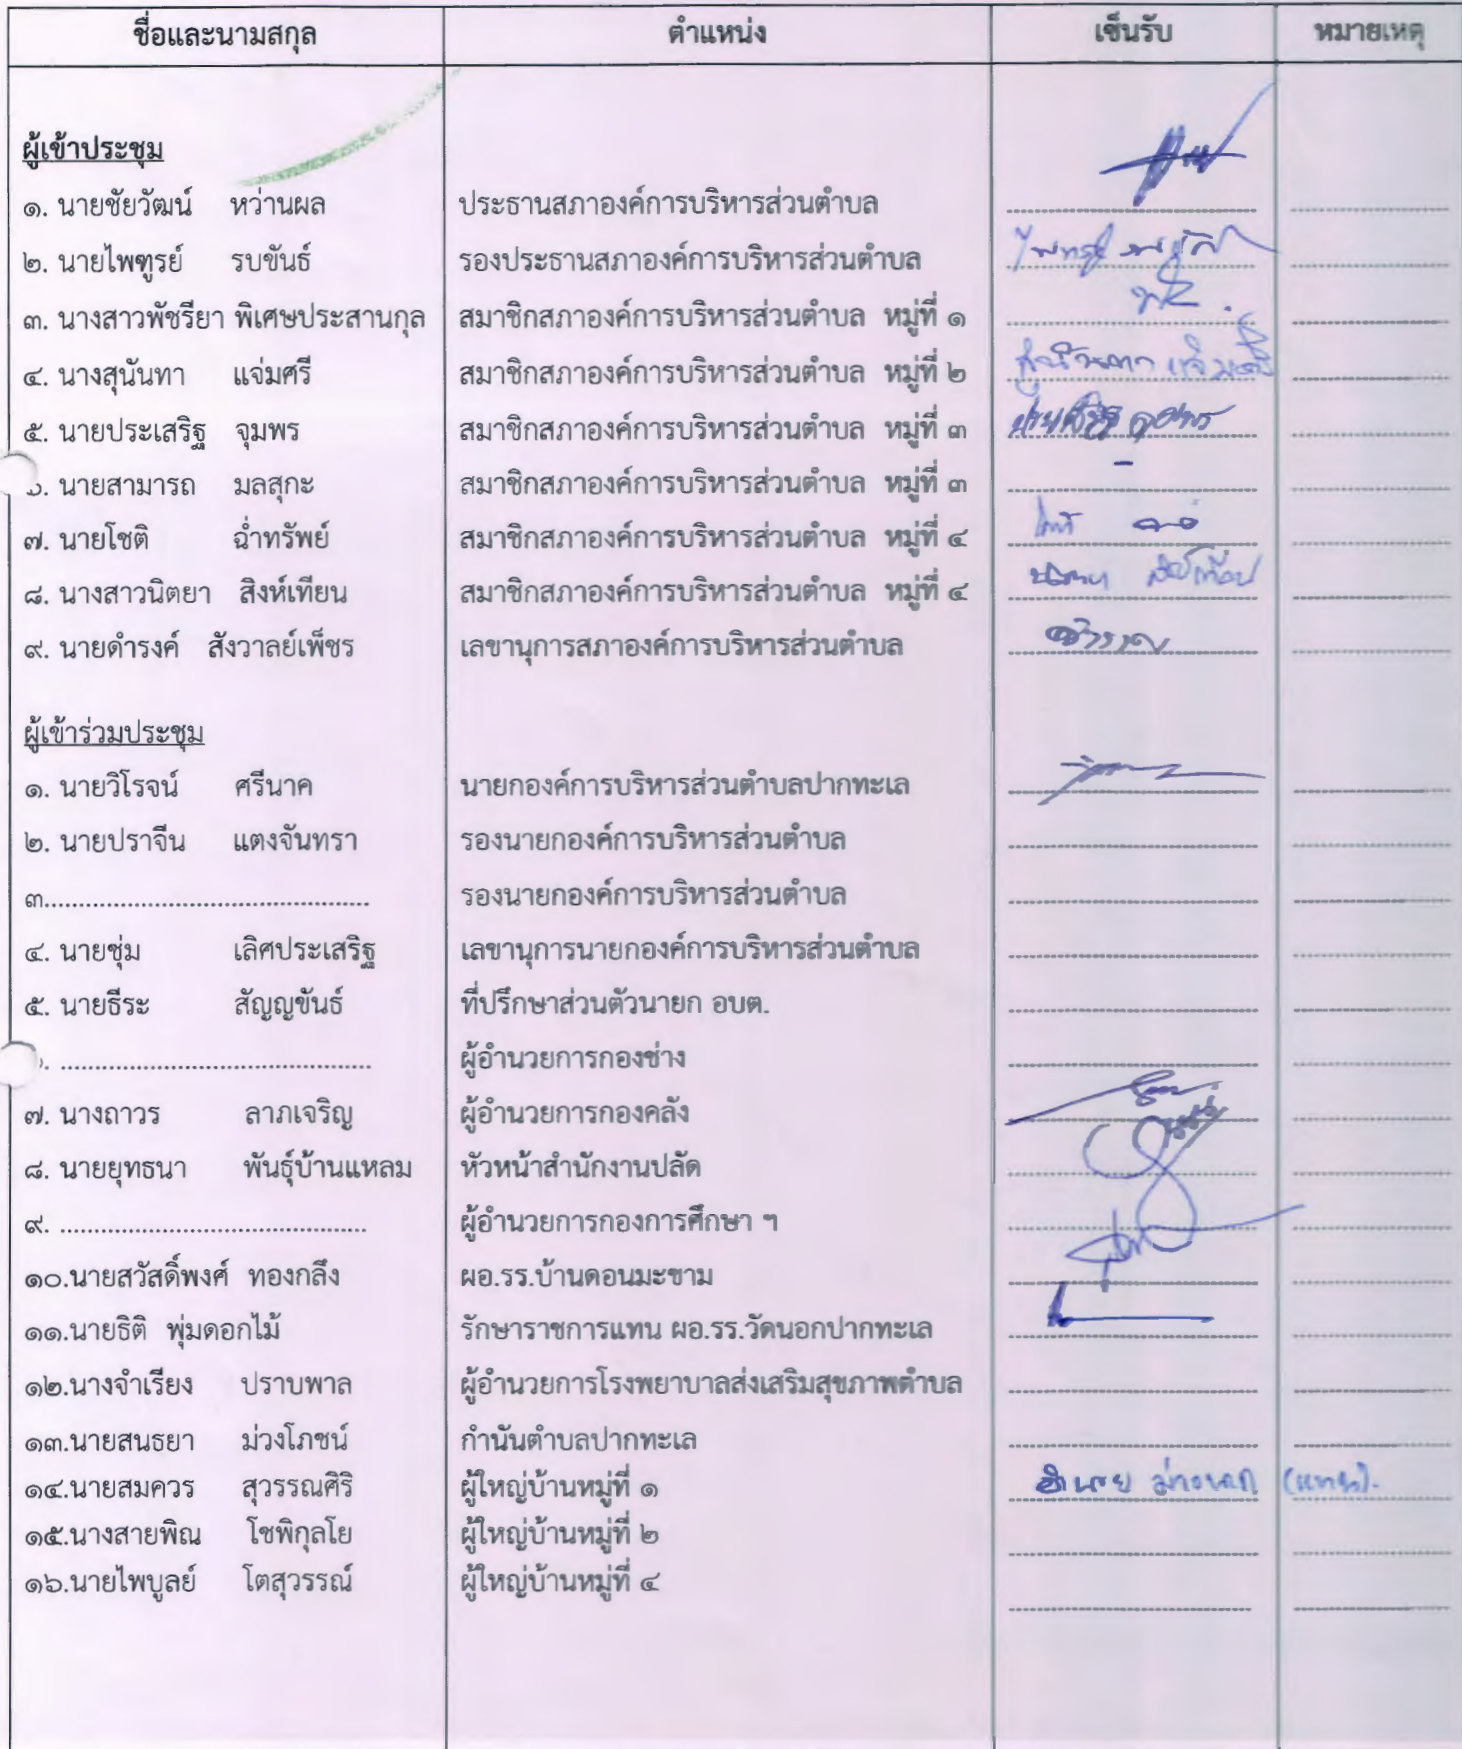 ชื่อและนามสกุล ตำแหน่ง เซ็นรับ หมายเหตุ
ผู้เข้าประชุม
๑. นายชัยวัฒน์ หว่านผล ประธานสภาองค์การบริหารส่วนตำบล
๒. นายไพฑูรย์ รบขันธ์ รองประธานสภาองค์การบริหารส่วนตำบล
๓. นางสาวพัชรียา พิเศษประสานกุล สมาชิกสภาองค์การบริหารส่วนตำบล หมู่ที่ ๑
๔. นางสุนันทา แจ่มศรี สมาชิกสภาองค์การบริหารส่วนตำบล หมู่ที่ ๒ สุนันทา แจ่มศรี
๕. นายประเสริฐ จุมพร สมาชิกสภาองค์การบริหารส่วนตำบล หมู่ที่ ๓ ประเสริฐ จุมพร
. นายสามารถ มลสุกะ สมาชิกสภาองค์การบริหารส่วนตำบล หมู่ที่ ๓ -
๗. นายโชติ ฉ่ำทรัพย์ สมาชิกสภาองค์การบริหารส่วนตำบล หมู่ที่ ๔
๘. นางสาวนิตยา สิงห์เทียน สมาชิกสภาองค์การบริหารส่วนตำบล หมู่ที่ ๔ นิตยา สิงห์เทียน
๙. นายดำรงค์ สังวาลย์เพ็ชร เลขานุการสภาองค์การบริหารส่วนตำบล
ผู้เข้าร่วมประชุม
๑. นายวิโรจน์ ศรีนาค นายกองค์การบริหารส่วนตำบลปากทะเล
๒. นายปราจีน แตงจันทรา รองนายกองค์การบริหารส่วนตำบล
๓............................................... รองนายกองค์การบริหารส่วนตำบล
๔. นายชุ่ม เลิศประเสริฐ เลขานุการนายกองค์การบริหารส่วนตำบล
๕. นายธีระ สัญญขันธ์ ที่ปรึกษาส่วนตัวนายก อบต.
. ............................................. ผู้อำนวยการกองช่าง
๗. นางถาวร ลาภเจริญ ผู้อำนวยการกองคลัง
๘. นายยุทธนา พันธุ์บ้านแหลม หัวหน้าสำนักงานปลัด
๙. ............................................ ผู้อำนวยการกองการศึกษา ฯ
๑๐.นายสวัสดิ์พงศ์ ทองกลึง ผอ.รร.บ้านดอนมะขาม
๑๑.นายธิติ พุ่มดอกไม้ รักษาราชการแทน ผอ.รร.วัดนอกปากทะเล
๑๒.นางจำเรียง ปราบพาล ผู้อำนวยการโรงพยาบาลส่งเสริมสุขภาพตำบล
๑๓.นายสนธยา ม่วงโภชน์ กำนันตำบลปากทะเล
๑๔.นายสมควร สุวรรณศิริ ผู้ใหญ่บ้านหมู่ที่ ๑ (แทน).
๑๕.นางสายพิณ โชพิกุลโย ผู้ใหญ่บ้านหมู่ที่ ๒
๑๖.นายไพบูลย์ โตสุวรรณ์ ผู้ใหญ่บ้านหมู่ที่ ๔